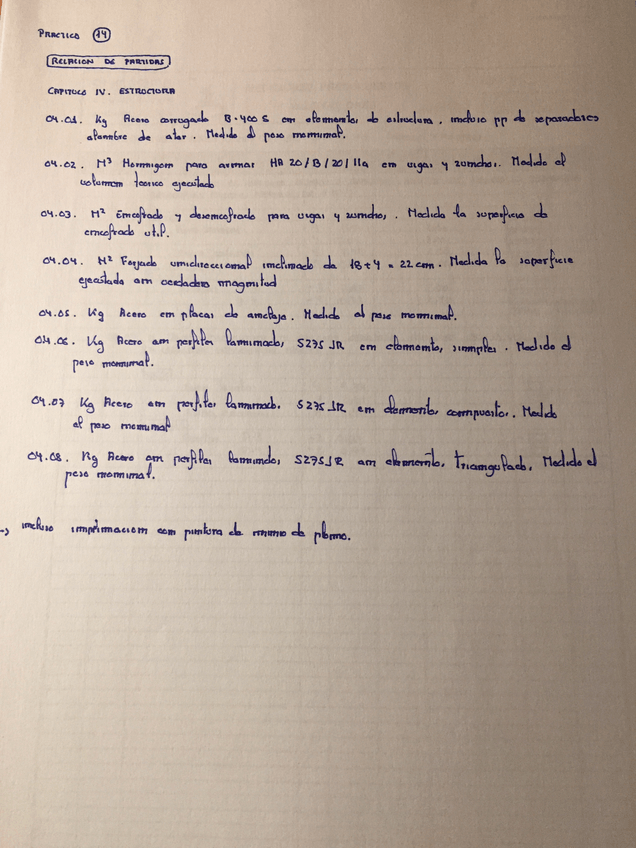 PRACTICO 14
RELACION DE PARTIDAS
CAPITULO IV. ESTRUCTURA
04.01. Kg Acero corrugado B-400 S en elementos de estructura. incluso pp de separadores
alambre de atar. Medido el peso nominal.
04.02. M³ Hormigon para armar HA 20/B/20/IIa en vigas y zunchos. Medido el
volumen teorico ejecutado
04.03. M² Encofrado y desencofrado para vigas y zunchos. Medida la superficie de
encofrado util.
04.04. M² Forjado unidireccional inclinado de 18+4 = 22 cm. Medida la superficie
ejecutada en verdadera magnitud
04.05. Kg Acero en placas de anclaje. Medido el peso nominal.
04.06. Kg Acero en perfiles laminados, S275 JR en elementos simples. Medido el
peso nominal.
04.07 Kg Acero en perfiles laminados. S275 JR en elementos compuestos. Medido
el peso nominal
04.08. Kg Acero en perfiles laminados, S275JR en elementos triangulados. Medido el
peso nominal.
→ incluso imprimacion con pintura de minio de plomo.